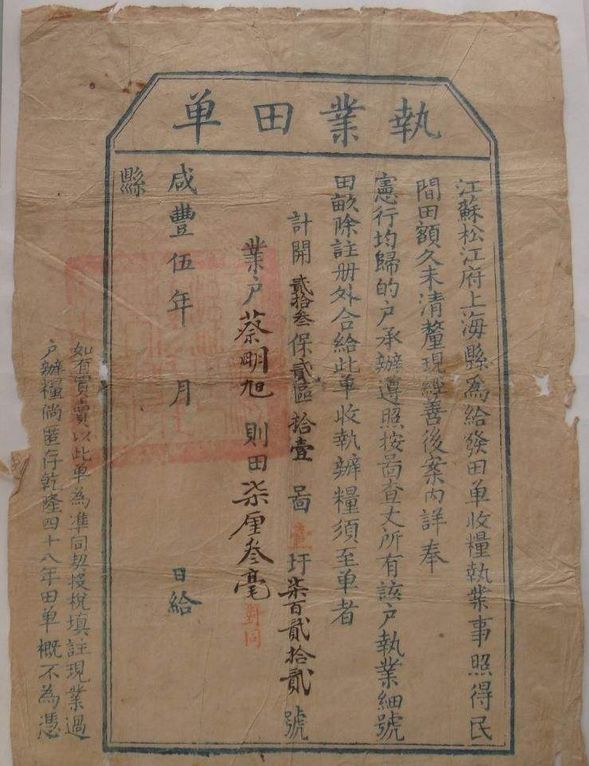 執業田单
江蘇松江府上海縣爲給發田单收糧執業事照得民
間田額久未清釐現經善後案内詳奉
憲行均歸的户承辦遵照按啚查丈所有該户執業細號
田畝除註册外合給此单收執辦糧須至单者
計開貳拾叁保貳區拾壹啚壹圩柒百貳拾貳號
業户蔡明旭則田柒厘叁毫對同
咸豐伍年月日給
縣
如有買賣以此单為凖同契投稅填註現業過
户辦糧倘匿存乾隆四十八年田单概不為憑